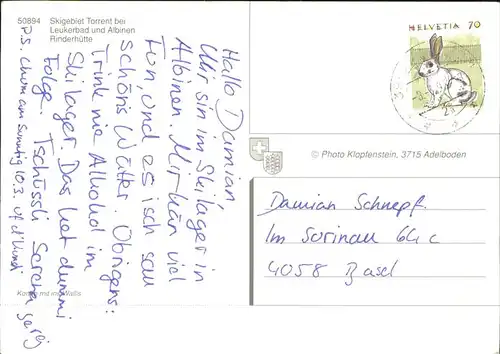 50894 Skigebiet Torrent bei
Leukerbad und Albinen
Rinderhütte
Hallo Damian,
Wir sin im Skilager in
Albinen. Mir hän viel
Fun, und es isch sau
schöns Wätter. Übrigens:
Trink nie Alkohol im
Skilager. Das het dummi
Folge. Tschüssli
P.S. Chum am Sunntig 10.3.
HELVETIA 70
© Photo Klopfenstein, 3715 Adelboden
Damian Schnepf
Im Surinam 64c
4058 Basel